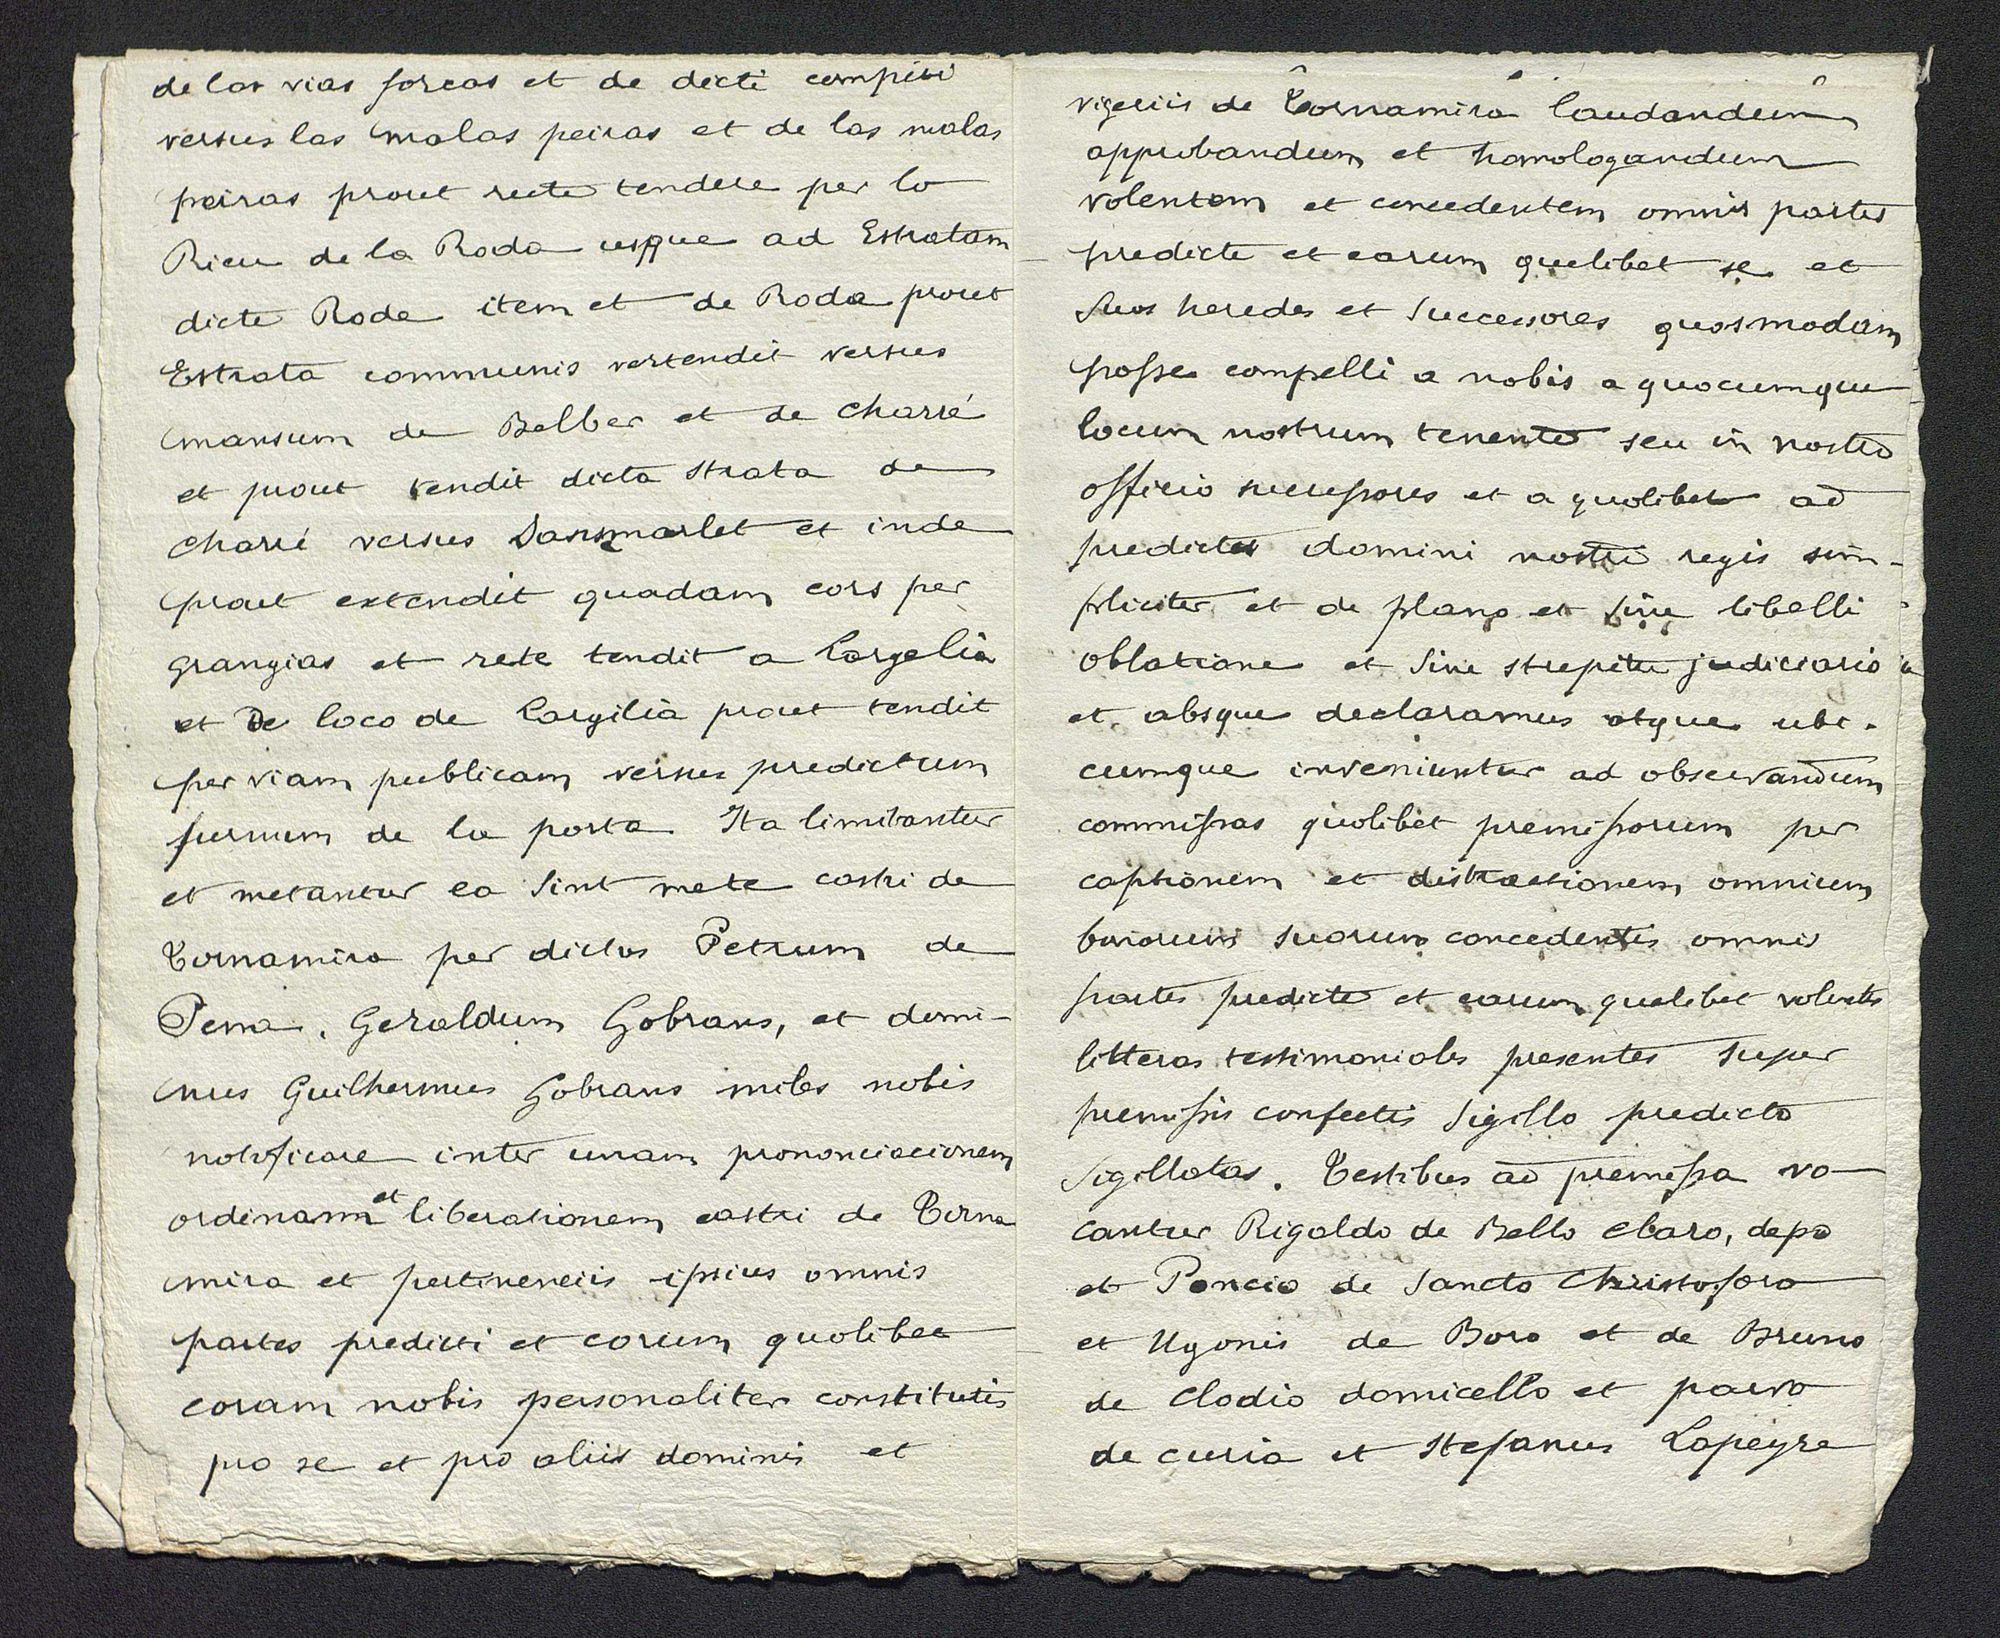 de las vias forcas et de dicti compivi
versus las malas peiras et de las malas
peiras prout recte tendere per lo
Rieu de la Roda usque ad Estratam
dicte Rode item et de Roda prout
Estrata communis vertendit versus
mansum de Belber et de Charré
et prout tendit dicta strata de
Charré versus Sansmarlet et inde
prout extendit quadam cors per
grangias et rete tendit a Largelia
et De loco de Largilia prout tendit
per viam publicam versus predictum
furnum de la porta Ita limitantur
et metantur ea sint mete castri de
Tornamira per dictos Petrum de
Penna, Geraldum Gobrans, et domi-
nus Guilhermus Gobrans miles nobis
notoficare inter unam prononciacionem
ordinam et liberationem castri de Torna
mira et pertinenciis ipsius omnis
partes predicti et eorum quolibet
coram nobis personaliter constitutis
pro se et pro aliis dominis et
vigeriis de Tornamira laudandum
approbandum et homologandum
volentem et concedentem omnis partes
predicte et earum quelibet se et
suos heredes et successores quosmodam
posse compelli a nobis a quocumque
locum nostrum tenente seu in nostro
officio successores et a quolibet ad
predictes domini nostri regis sim-
pliciter et de plano et sine libelli
oblatione et sine strepitu judiciario
et absque declaramus atque ubi-
cumque inveniuntur ad observandum
commissas quolibet premissorum per
captionem et distractionem omnium
bonorum suorum concedentis omnis
partes predicte et earum quelibet volentes
litteras testimoniales presentes super
premissis confectis sigillo predicto
sigillatas. Testibus ad premissa vo-
cantur Rigaldo de Bello Claro, depo
et Poncio de Sancto Christoforo
et Ugonis de Boro et de Bruno
de Clodio domicello et parvo
de curia et Stefanus Lapeyre